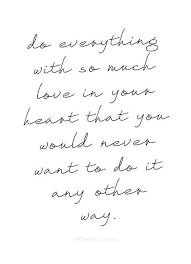 do everything
with so much
love in your
heart that you
would never
want to do it
any other
way.